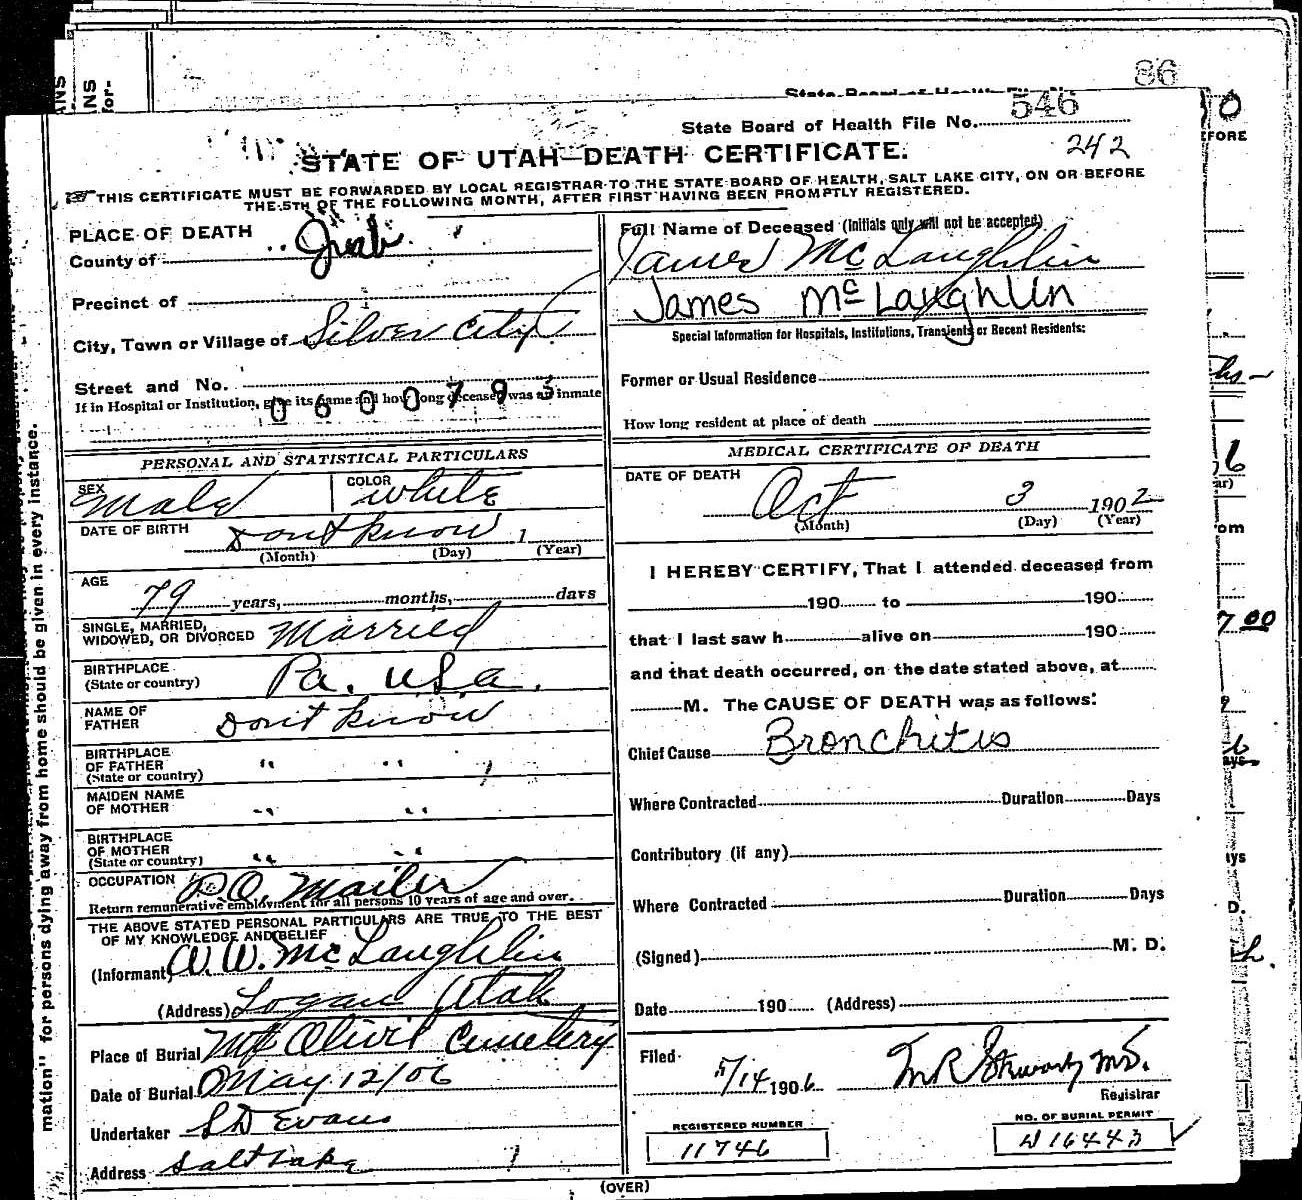 86
State Board of Health File No. 546
242
STATE OF UTAH—DEATH CERTIFICATE.
THIS CERTIFICATE MUST BE FORWARDED BY LOCAL REGISTRAR TO THE STATE BOARD OF HEALTH, SALT LAKE CITY, ON OR BEFORE
THE 5TH OF THE FOLLOWING MONTH, AFTER FIRST HAVING BEEN PROMPTLY REGISTERED.
PLACE OF DEATH
County of Juab
Precinct of
City, Town or Village of Silver City
Street and No.
If in Hospital or Institution, give its name and how long deceased was an inmate
0600793
Full Name of Deceased (Initials only will not be accepted)
James McLaughlin
James McLaughlin
Special Information for Hospitals, Institutions, Transients or Recent Residents:
Former or Usual Residence
How long resident at place of death
PERSONAL AND STATISTICAL PARTICULARS
SEX Male COLOR White
DATE OF BIRTH Dont know 1
(Month) (Day) (Year)
AGE 79 years, months, days
SINGLE, MARRIED,
WIDOWED, OR DIVORCED Married
BIRTHPLACE
(State or country) Pa. U.S.a.
NAME OF
FATHER Dont know
BIRTHPLACE
OF FATHER
(State or country) " "
MAIDEN NAME
OF MOTHER " "
BIRTHPLACE
OF MOTHER
(State or country) " "
OCCUPATION P.O. Mailer
Return remunerative employment for all persons 10 years of age and over.
THE ABOVE STATED PERSONAL PARTICULARS ARE TRUE TO THE BEST
OF MY KNOWLEDGE AND BELIEF
(Informant) W. W. McLaughlin
(Address) Logan Utah
Place of Burial Mt Olivit Cemetery
Date of Burial May 12/06
Undertaker S D Evans
Address Salt Lake
MEDICAL CERTIFICATE OF DEATH
DATE OF DEATH
Oct 3 1902
(Month) (Day) (Year)
I HEREBY CERTIFY, That I attended deceased from
190 to 190
that I last saw h alive on 190
and that death occurred, on the date stated above, at
M. The CAUSE OF DEATH was as follows:
Chief Cause Bronchitis
Where Contracted Duration Days
Contributory (if any)
Where Contracted Duration Days
(Signed) M. D.
Date 190 (Address)
Filed 5/14 1906 M R Stewart M.D.
Registrar
REGISTERED NUMBER
11746
NO. OF BURIAL PERMIT
W 16443
(OVER)
mation" for persons dying away from home should be given in every instance.